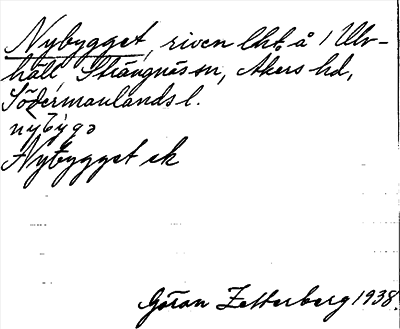 Nybygget, riven lht å 1 Ulv-
häll, Strängnäs sn, Åkers hd,
Södermanlands l.
nỳbýgə
Nybygget ek
Göran Zetterberg 1938.